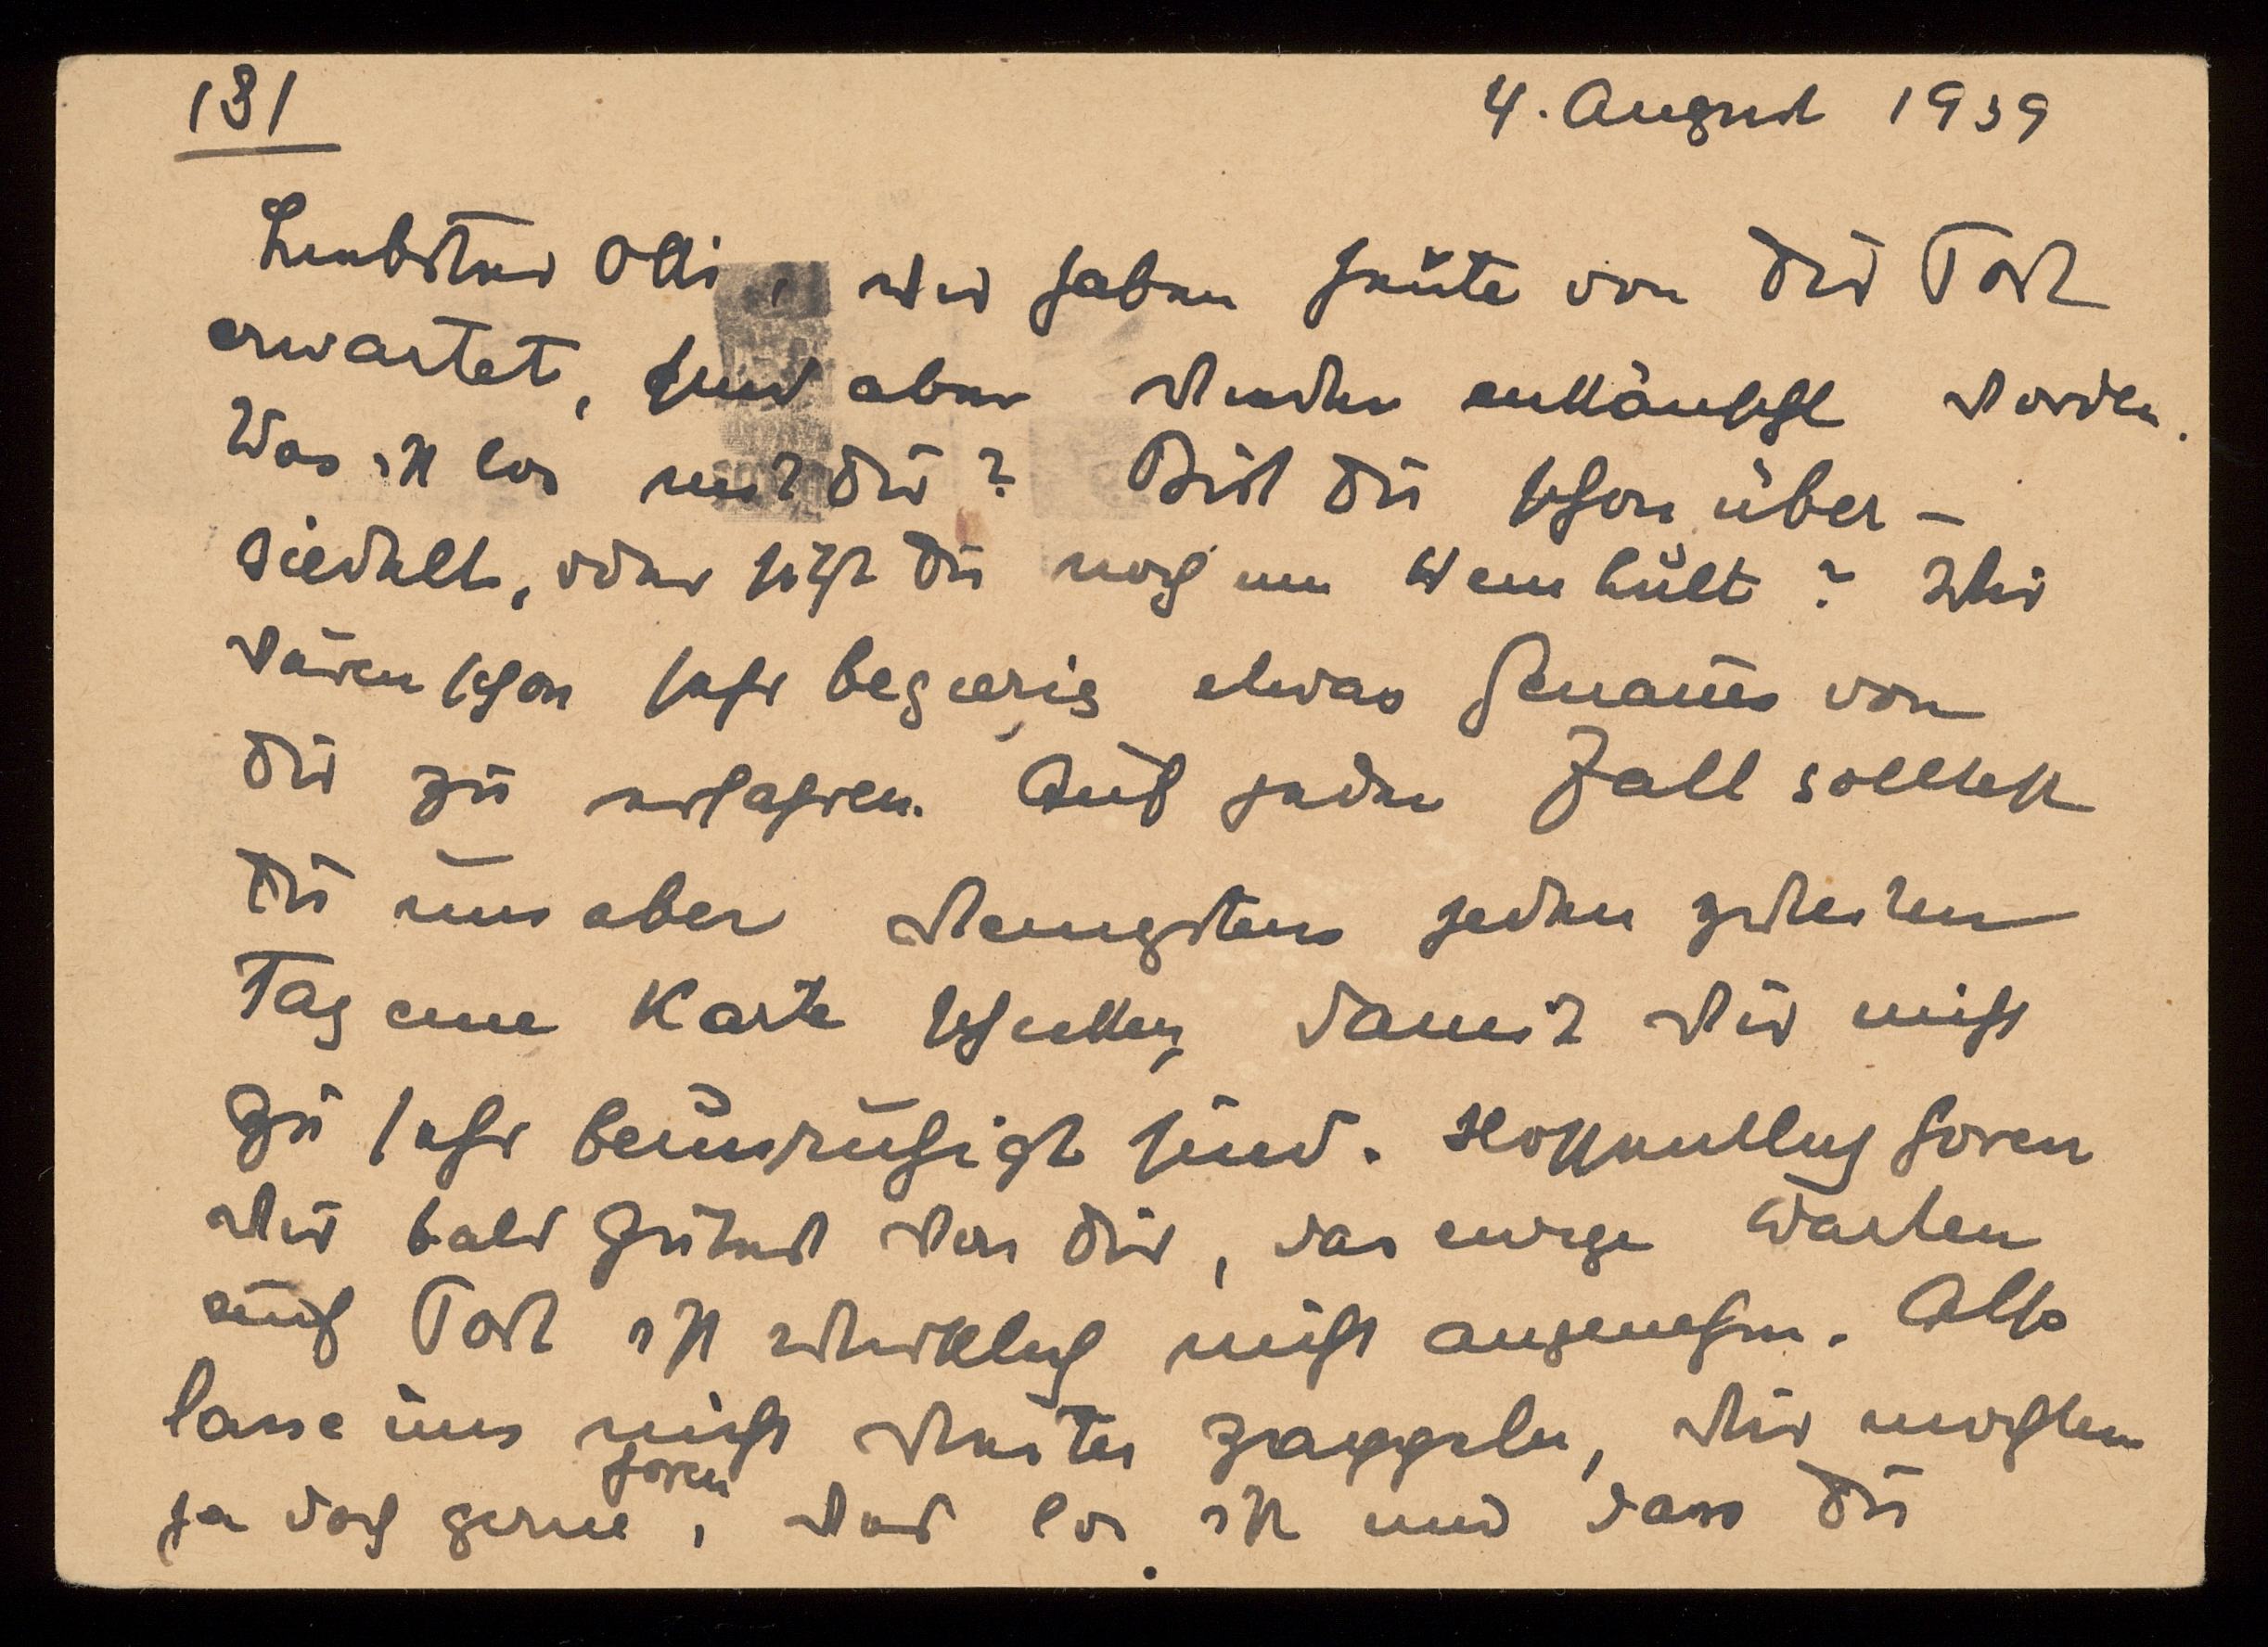 131
4. August 1939
Liebster Olli, wir haben heute von Dir Post
erwartet, sind aber wieder enttäuscht worden.
Was ist los mit Dir? Bist Du schon über-
siedelt, oder sitzt Du noch in Weinhült? Wir
wären schon sehr begierig etwas Genaues von
Dir zu erfahren. Auf jeden Fall solltest
Du uns aber wenigstens jeden zweiten
Tag eine Karte schicken, damit wir nicht
zu sehr beunruhigt sind. Hoffentlich horen
wir bald Gutes von Dir, das ewige Warten
auf Post ist wirklich nicht angenehm. Also
lasse uns nicht weiter zappeln, wir mochten
ja doch gerne horen, was los ist und dass Du